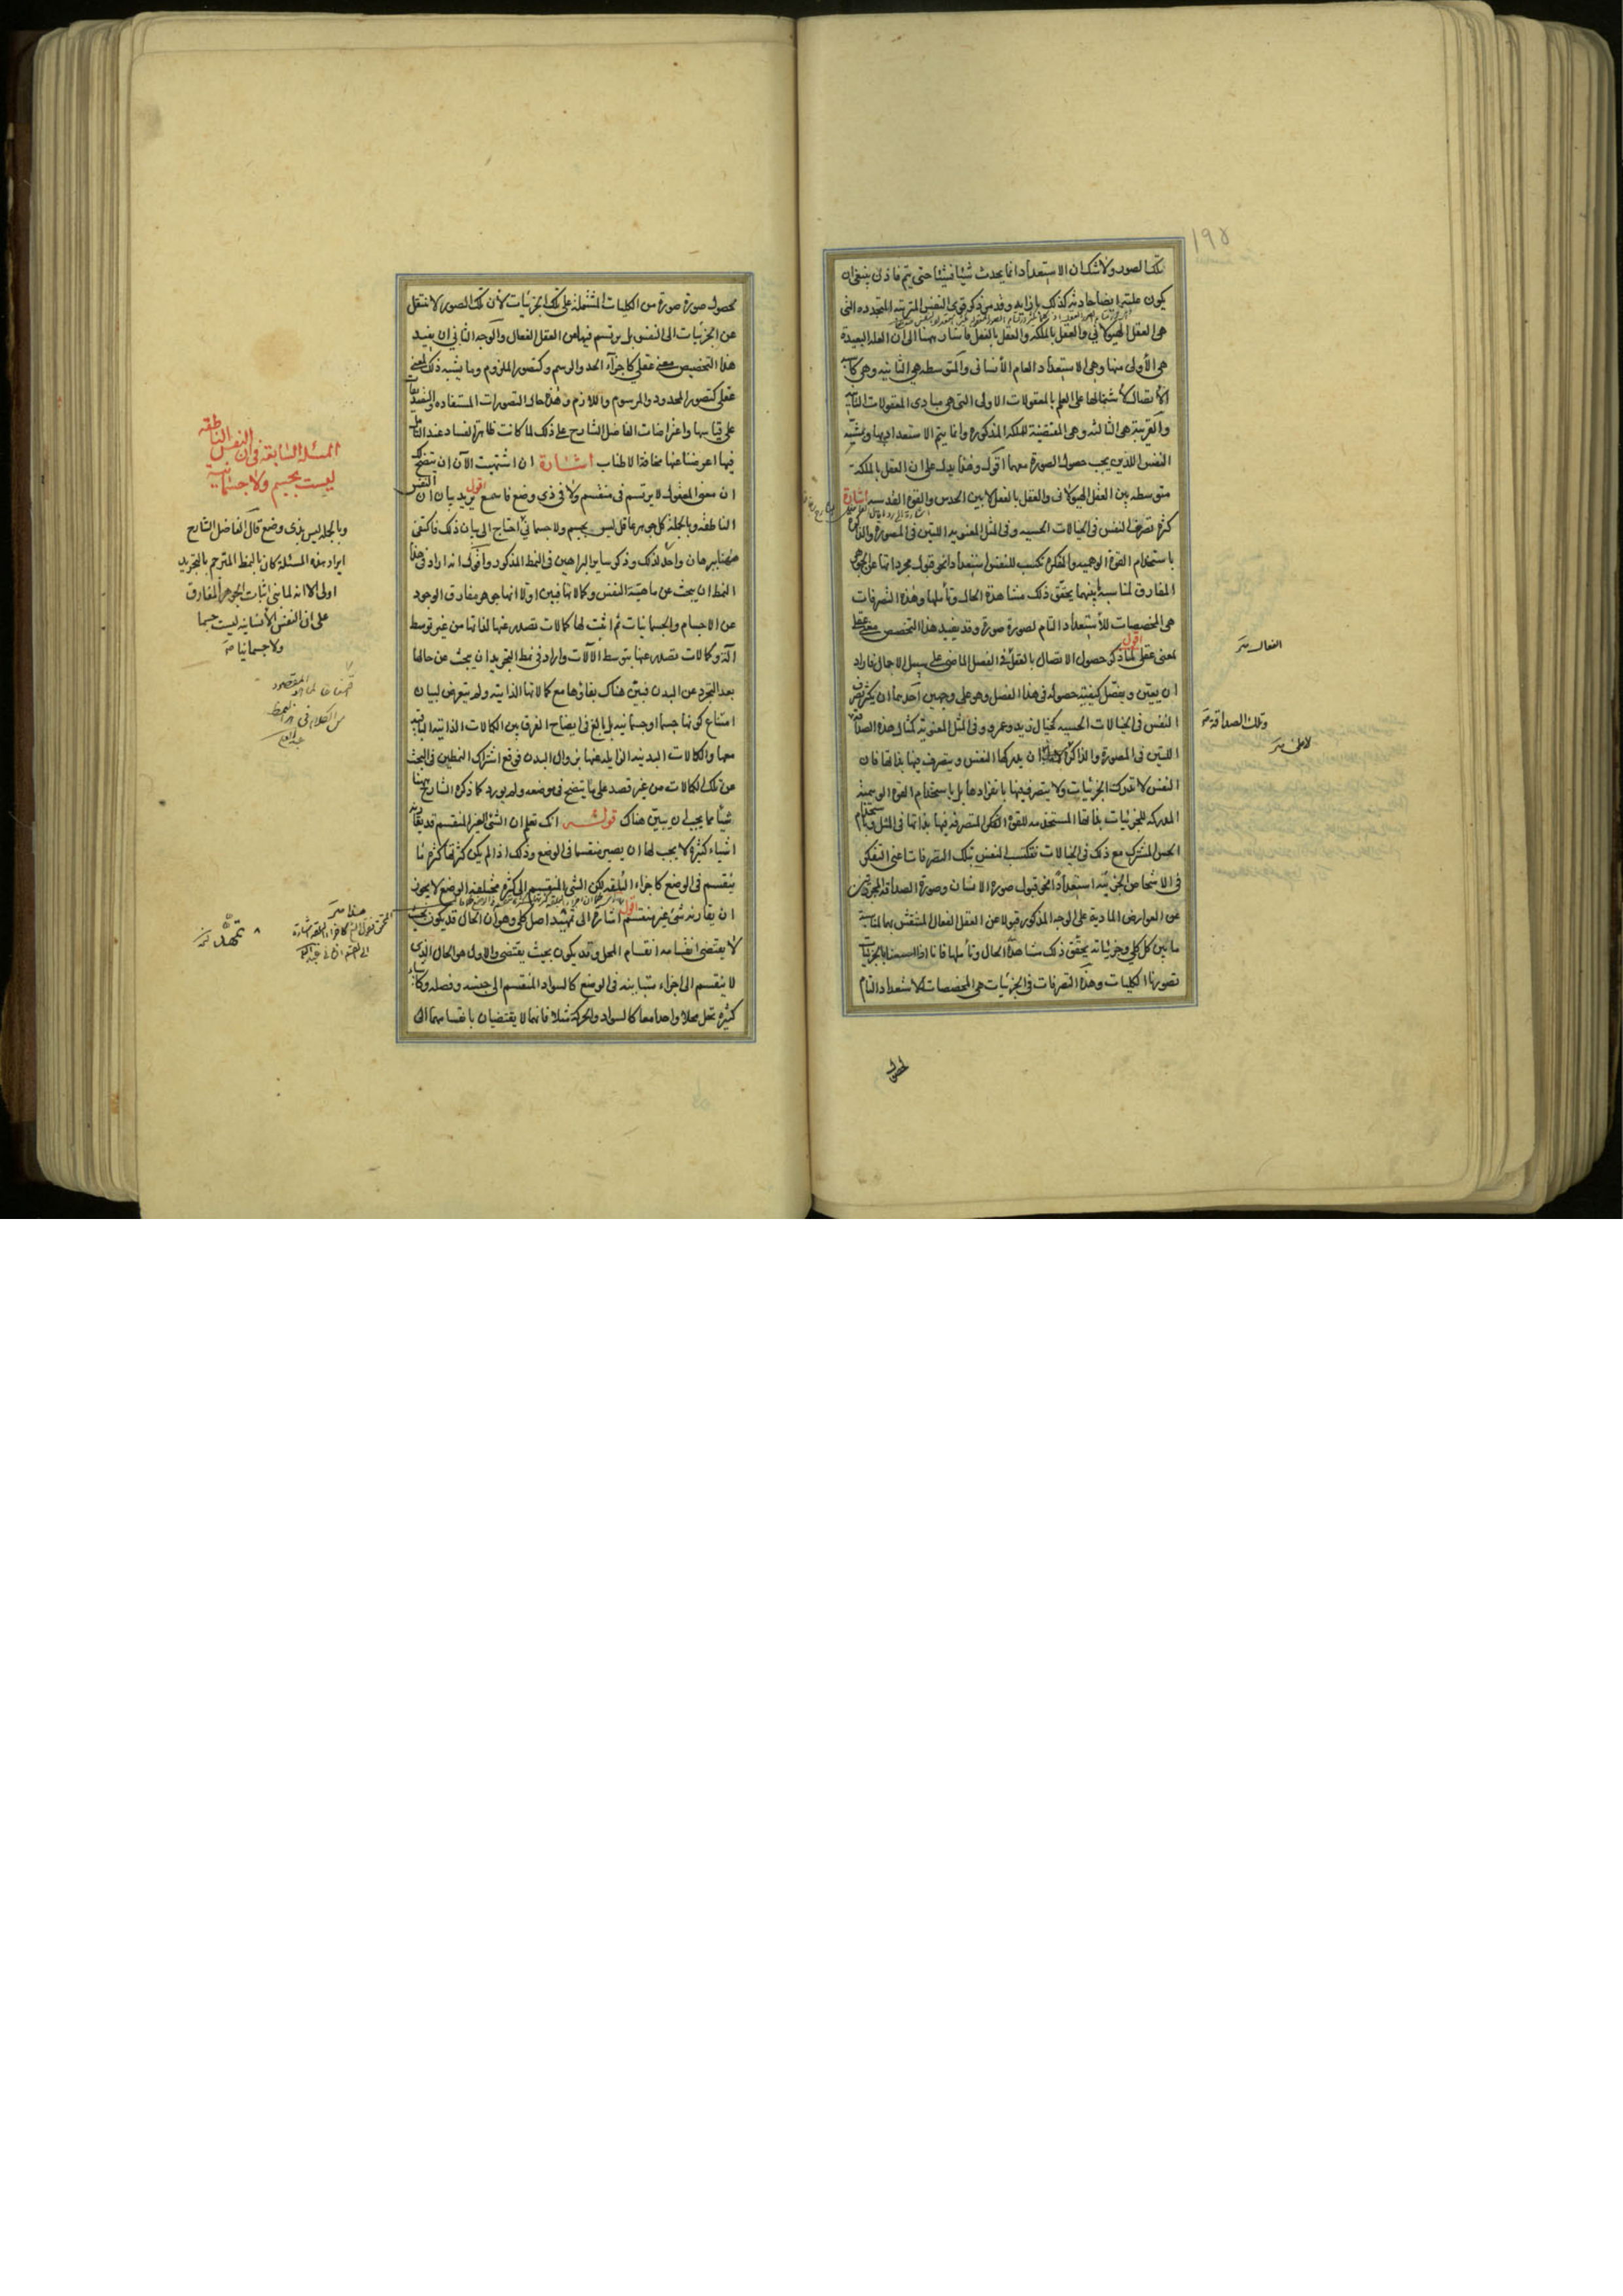 ١٩٥
تلك الصور ولا شك ان الاستعداد انما يحدث شيئا فشيئا حتى يتم فاذن ينبغى ان
يكون علته ايضا حادثه كذلك بازايه وقد مر ذكر قوى النفس المترتبه المتجدده التى
هى العقل الهيولانى والعقل بالملكه والعقل بالفعل فاشار ههنا الى ان العله البعيدة
هى الأولى منها وهى الاستعداد العام الأنسانى والمتوسطه هى الثانيه وهى كاسبة
الأتصال لأشتمالها على العلم بالمعقولات الاولى التى هى مبادى المعقولات الثانية
والقريبة هى الثالثه وهى المقتضية للملكه المذكوره وانما يتم الاستعداد بها وبمشية
النفس اللذين يجب حصول الصورة معهما اقول وهذا يدل على ان العقل بالملكة
متوسطه بين العقل الهيولانى والعقل بالفعل لا بين الحدس والقوه القدسيه اشارة
كثرة تصرف النفس فى الخيالات الحسيه وفى المثل المعنويه اللتين فى المصورة والذاكرة
باستخدام القوة الوهميه والمفكره تكسب للنفس استعدادا نحو قبول مجرداتها عن الجوهر
المفارق لمناسبة بينهما يحقق ذلك مشاهدة الحال وتأملها وهذه التصرفات
هى المخصصات للأستعداد التام لصورة صورة وقد يفيد هذا التخصص معنى عقلى
لمعنى عقلى اقول لما ذكر حصول الاتصال بالعقل فى الفصل الماضى على سبيل الاجمال فاراد
ان يبين ويفصل كيفية حصوله فى هذا الفصل وهو على وجهين احدهما ان يكثر تصرف
النفس فى الخيالات الحسيه كخيال زيد وعمرو وفى المثل المعنوية كمثال هذه الصداقة
اللتين فى المصورة والذاكرة ان يدركها النفس ويتصرف فيها بذاتها فان
النفس لا تدرك الجزئيات ولا يتصرف فيها بانفرادها بل باستخدام القوه الوهميه
المدركه للجزئيات بذاتها المستخدمه للقوة الفكرى المتصرفه فيها بذاتها فى المثل وباستخدام
الحس المشترك مع ذلك فى الخيالات فتكتسب النفس بتلك التصرفات اعنى التفكر
فى الاشخاص الجزئية استعدادا نحو قبول صوره الانسان وصورة الصداقه المجردتين
عن العوارض المادية على الوجه المذكور قبولا عن العقل الفعال المنتقش بها لمناسبة
ما بين كل كلى وجزئياته يحقق ذلك مشاهدة الحال وتأملها فانا اذا احسسنا بالجزئيات
تصورنا الكليات وهذه التصرفات فى الجزئيات هى المخصصات للاستعداد التام
لحصول
الفعال
وتلك الصداقة
لا على
لحصول صورة صورة من الكليات المشتمله على تلك الجزئيات لأن تلك الصور لا تنتقل
عن الجزئيات الى النفس بل يرتسم فيها من العقل الفعال والوجه الثانى ان يفيد
هذا التخصيص معنى عقلى كاجزآء الحد والرسم وكتصور الملزوم وما يشبه ذلك لمعنى
عقلى كتصور المحدود والمرسوم واللازم وهذه حال التصورات المستفاده والتصديقات
على قياسها واعتراضات الفاضل الشارح على ذلك لما كانت ظاهرة الفساد عند التأمل
فيها اعرضنا عنها مخافة الاطناب اشارة ان اشتهيت الآن ان يتضح لك
ان معنى المعقول لا يرتسم فى منقسم ولا فى ذى وضع فاسمع اقول يريد بيان ان النفس
الناطقه وبالجملة كل جوهر عاقل ليس بجسم ولا جسمانى احتاج الى بيان ذلك فاكتفى
ههنا ببرهان واحد لذلك وذكر ساير البراهين فى النمط المذكور واقول انه اراد فى هذا
النمط ان يبحث عن ماهية النفس وكمالاتها فبين اولا انها جوهر مفارق الوجود
عن الاجسام والجسمانيات ثم اثبت لها كمالات تصدر عنها لذاتها من غير توسط
آلة وكمالات تصدر عنها بتوسط الآلات واراد فى نمط التجريد ان يبحث عن حالها
بعد التجرد عن البدن فبين هناك بقاؤها مع كمالاتها الذاتيه ولم يتعرض لبيان
امتناع كونها جسما او جسمانيه بل بالغ فى ايضاح الفرق بين الكمالات الذاتيه الباقية
معها والكمالات البدنيه الزايله عنها بزوال البدن فوقع اشتراك النمطين فى البحث
عن تلك الكمالات من غير قصد على ما يتضح فى موضعه ولم يورد كما ذكره الشارح ههنا
شيئا مما يجب ان يبين هناك قوله انك تعلم ان الشئ الغير المنقسم قد يقارنه
اشياء كثيرة لا يجب لها ان يصير منقسما فى الوضع وذلك اذا لم يكن كثرتها كثرة ما
ينقسم فى الوضع كاجزاء البلقه لكن الشئ المنقسم الى كثرة مختلفه الوضع لا يجوز
ان يقارنه شئ غير منقسم اقول اشارة الى تمهيد اصل كلى وهو ان الحال قد يكون بحيث
لا يقتضى انقسامه انقسام المحل وقد يكون بحيث يقتضى والاول هو الحال الذى
لا ينقسم الى اجزاء متباينه فى الوضع كالسواد المنقسم الى جنسه وفصله وكاشياء
كثيره تحل محلا واحدا معا كالسواد والحركة مثلا فانهما لا يقتضيان بانقسامهما ان
المسئلة السابعة فى ان النفس الناطقه
ليست بجسم ولا جسمانية
وبالجمله ليس بذى وضع قال الفاضل الشارح
ايراد هذه المسئله كان بالنمط المترجم بالتجريد
اولى الا انه لما بنى اثبات الجوهر المفارق
على ان النفس الأنسانيه ليست جسما
ولا جسمانيا
المقصود
من الكلام فى هذا النمط
تمهيد